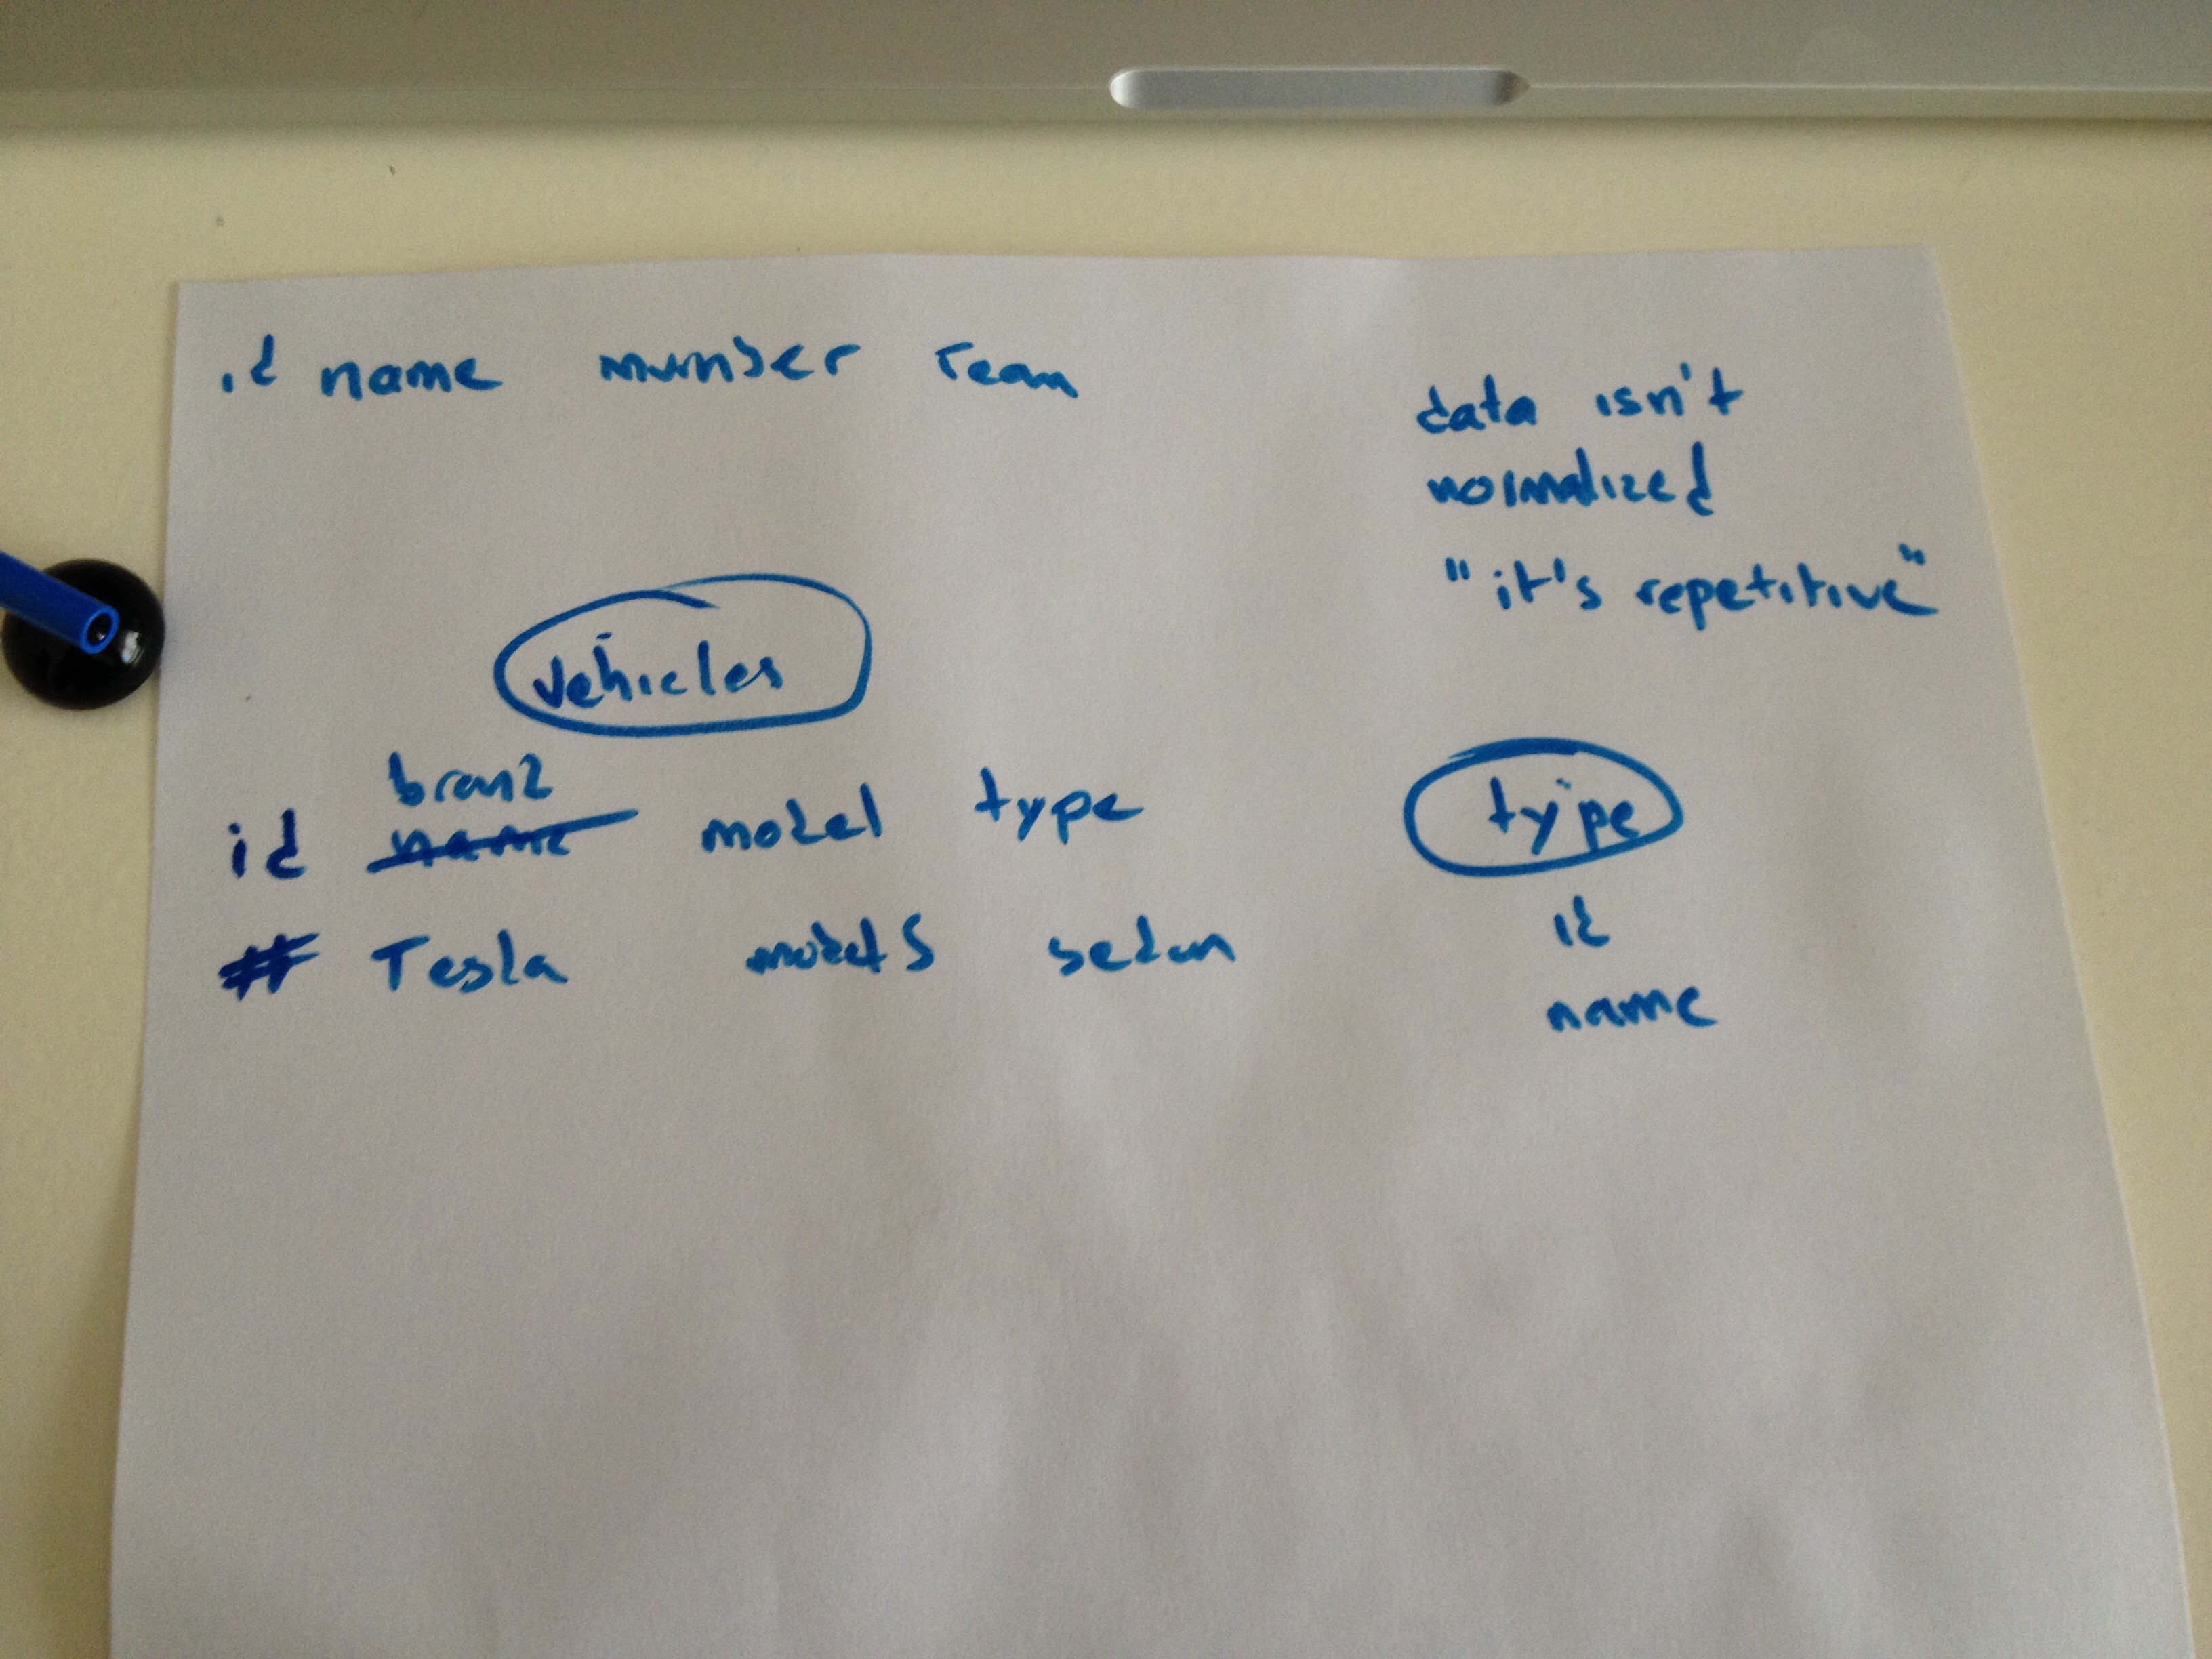 id name number team
data isn't
normalized
"it's repetitive"
vehicles
brand
id name model type
# Tesla model S sedan
type
id
name